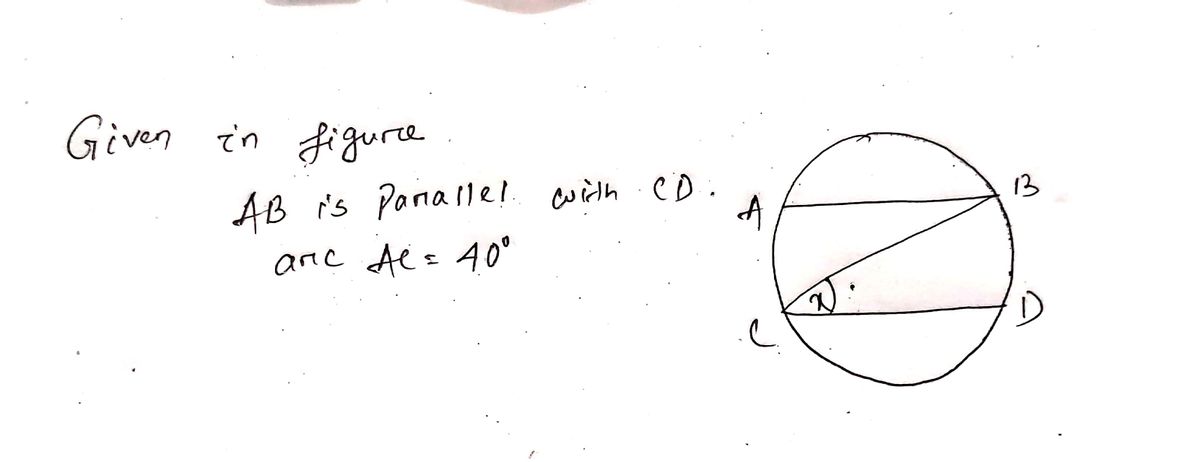 Given in figure
AB is Parallel with CD.
arc AC = 40°
A
B
x
C
D